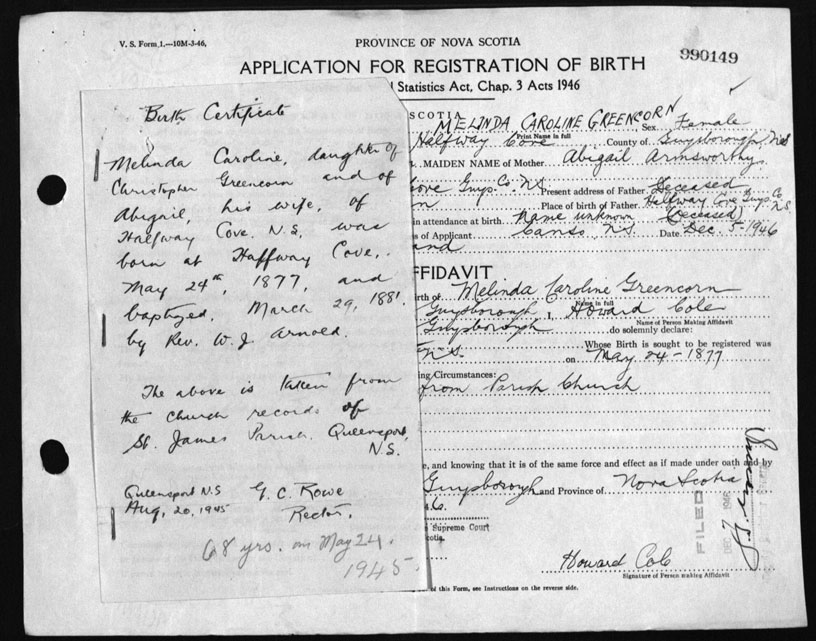 V. S. Form 1.—10M-3-46.
PROVINCE OF NOVA SCOTIA
990149
APPLICATION FOR REGISTRATION OF BIRTH
Statistics Act, Chap. 3 Acts 1946
Birth Certificate
Melinda Caroline, daughter of
Christopher Greencorn and of
Abigail, his wife, of
Halfway Cove. N.S, was
born at Halfway Cove,
May 24th, 1877, and
baptized, March 29, 1881.
by Rev. W. J. Arnold.
The above is taken from
the church records of
St. James Parish. Queensport,
N.S.
Queensport N.S G. C. Rowe
Aug, 20, 1945 Rector.
68 yrs. on May 24.
1945
SCOTIA
MELINDA CAROLINE GREENCORN Sex Female
Print Name in full
Halfway Cove County of Guysborough, N.S
MAIDEN NAME of Mother Abigail Armsworthy
Cove Guys. Co. N.S. Present address of Father Deceased
Place of birth of Father Halfway Cove Guys. Co N.S.
in attendance at birth. Name unknown (Deceased)
of Applicant Canso, N.S. Date Dec. 5-1946
and
FFIDAVIT
birth of Melinda Caroline Greencorn
Guysborough I, Howard Cole
Name in full
Name of Person Making Affidavit
Guysborough do solemnly declare:
N.S. Whose Birth is sought to be registered was
on May 24-1877
ing Circumstances:
from Parish Church
e, and knowing that it is of the same force and effect as if made under oath and by
Guysborough and Province of Nova Scotia
46.
Supreme Court
cotia.
FILED
DEC 7 1946
Howard Cole
Signature of Person making Affidavit
of this Form, see Instructions on the reverse side.